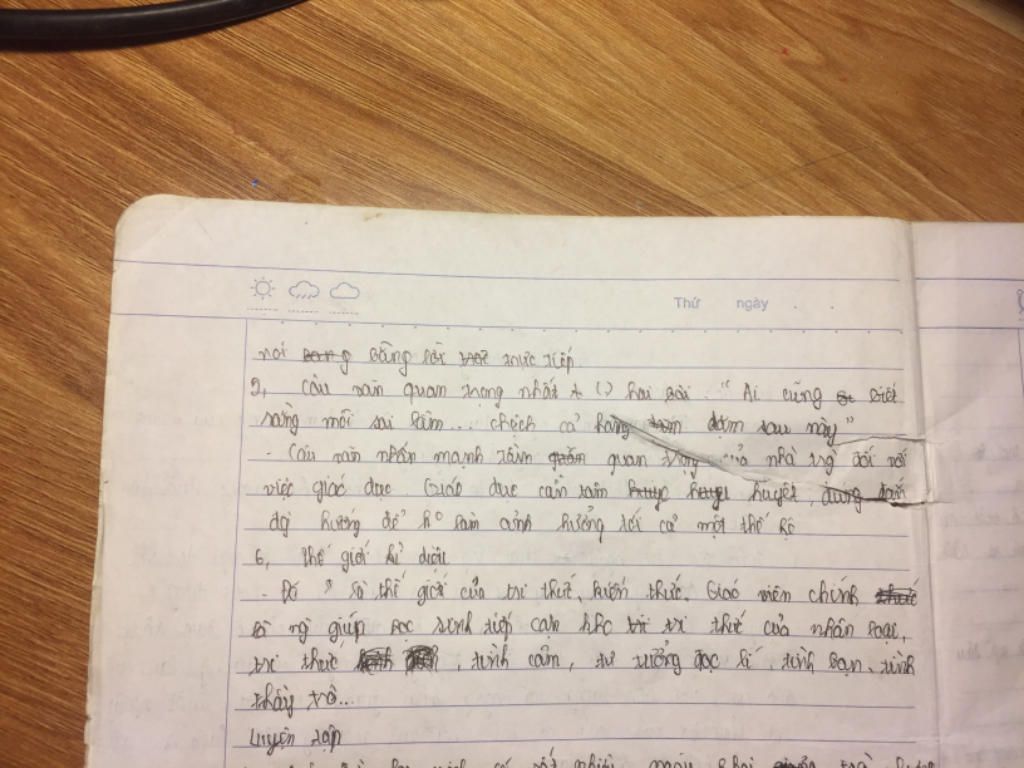 Thứ ngày . .
nói bằng lời trực tiếp
5, Câu văn quan trọng nhất () hai bài : " Ai cũng biết
rằng mỗi sai lầm ... chệch cả hàng dặm sau này"
- Câu văn nhấn mạnh tầm quan trọng của nhà trg đối với
việc giáo dục. Giáo dục cần tâm huyết,
hướng để ko làm ảnh hưởng tới cả một thế hệ
6, thế giới kì diệu
- Đó là thế giới của tri thức, kiến thức. Giáo viên chính
là ng giúp học sinh tiếp cận tri thức của nhân loại,
tri thức , tình cảm, tư tưởng đạo lí tình bạn, tình
thầy trò...
Luyện tập